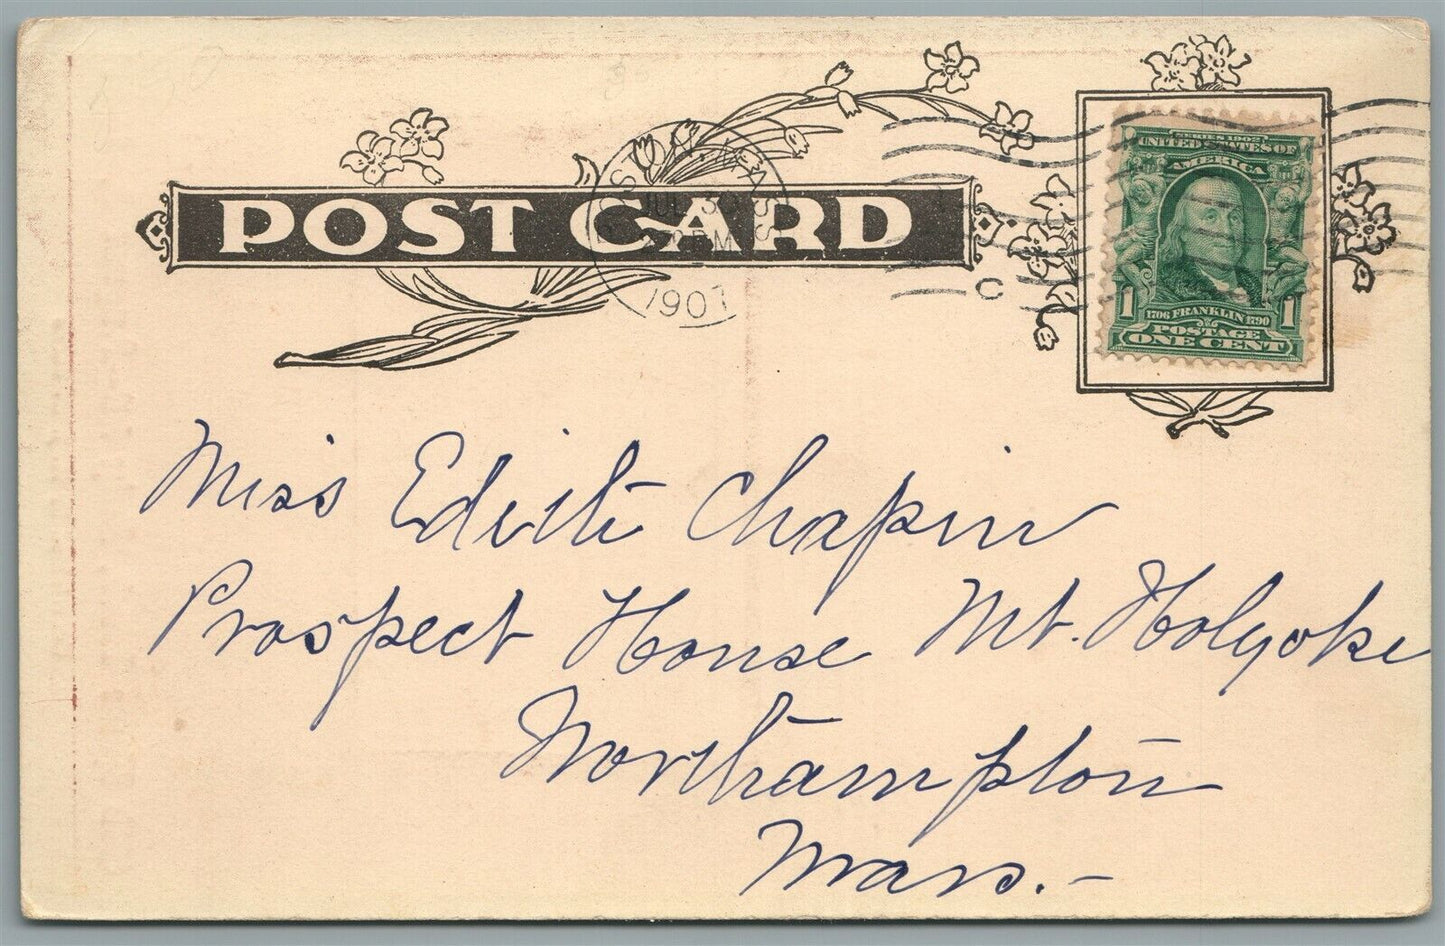 POST CARD
JUL 30
PM
1907
C
SERIES 1902
UNITED STATES OF
AMERICA
1706 FRANKLIN 1790
1 1
POSTAGE
ONE CENT
Miss Edith Chapin
Prospect House Mt. Holyoke
Northampton
Mass.-